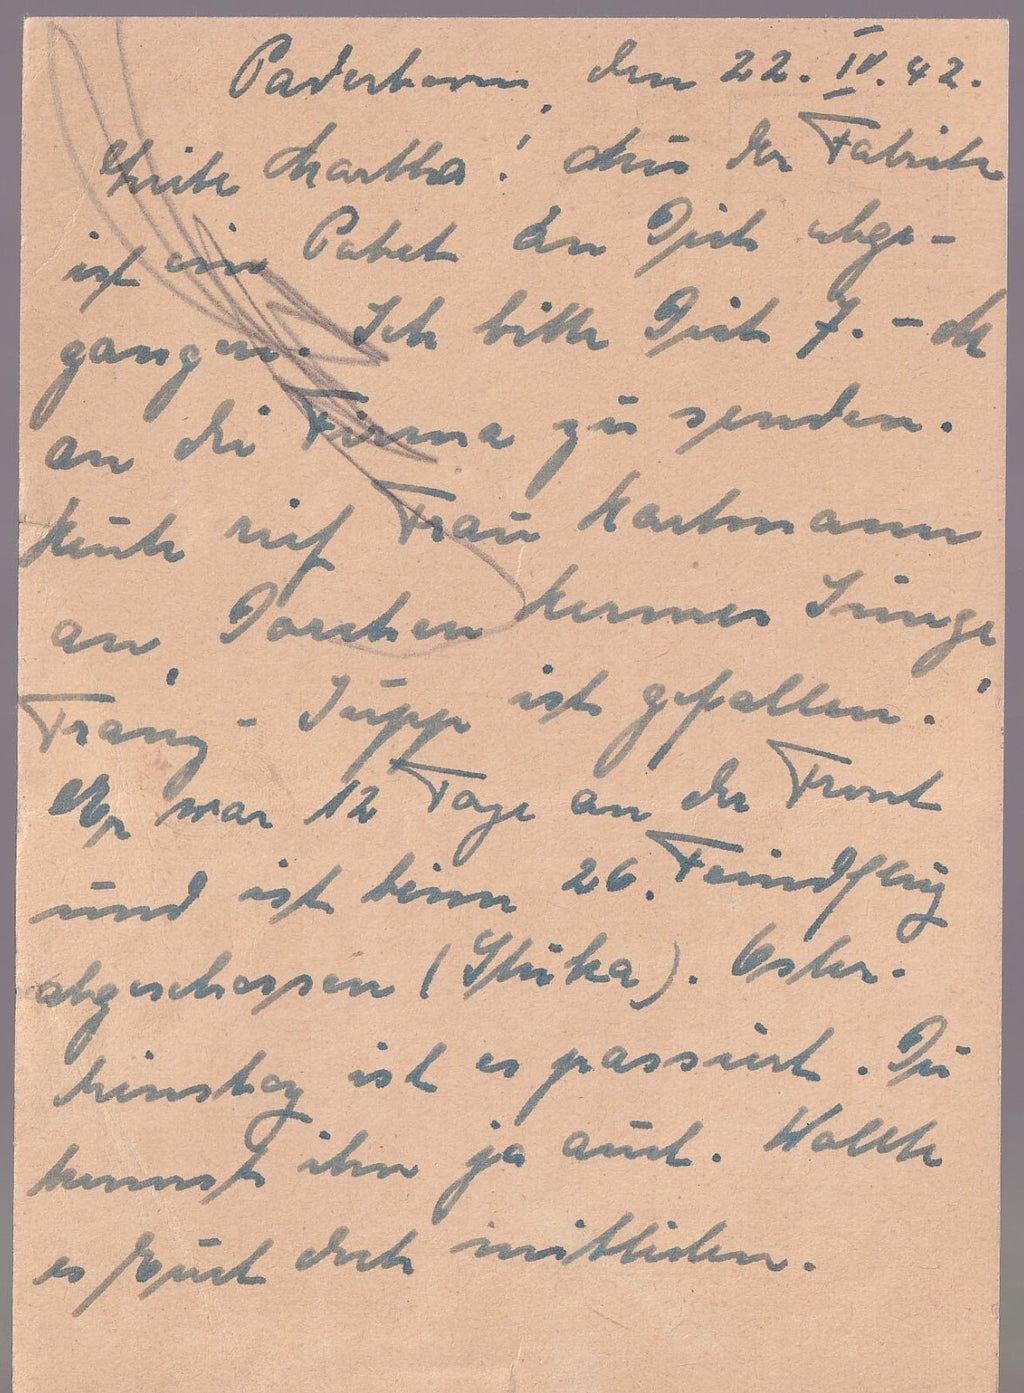 Paderborn, den 22. IV. 42.
Liebe Martha! Aus der Fabrik
ist ein Paket an Dich abge-
gangen. Ich bitte Dich 7.- M
an die Firma zu senden.
Heute rief Frau Hartmann
an, Dorchen Hermes Junge,
Franz-Jupp ist gefallen.
Er war 12 Tage an der Front
und ist beim 26. Feindflug
abgeschossen (Stuka). Oster-
dienstag ist es passiert. Du
kennst ihn ja auch. Wollte
es Euch doch mitteilen.